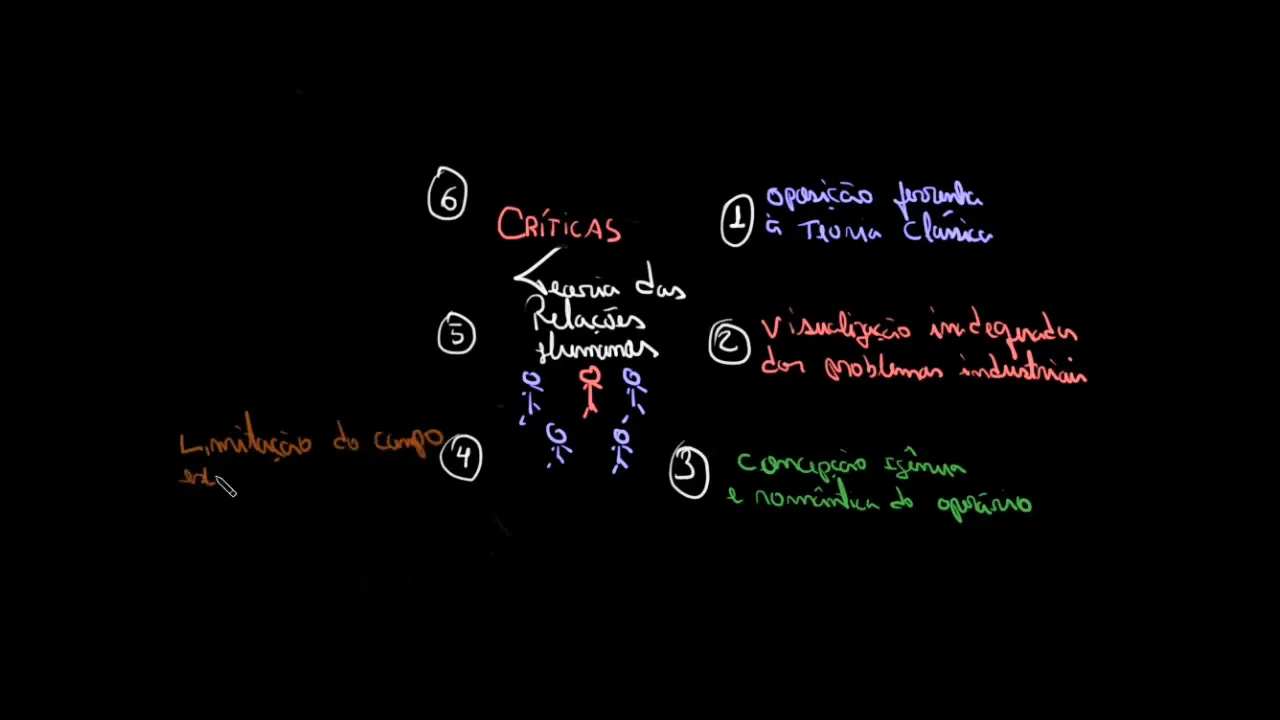 6
CRÍTICAS
Teoria das
Relações
Humanas
1
oposição ferrenha
à Teoria Clássica
2
Visualização inadequada
dos problemas industriais
3
Concepção ingênua
e romântica do operário
4
Limitação do campo
est
5